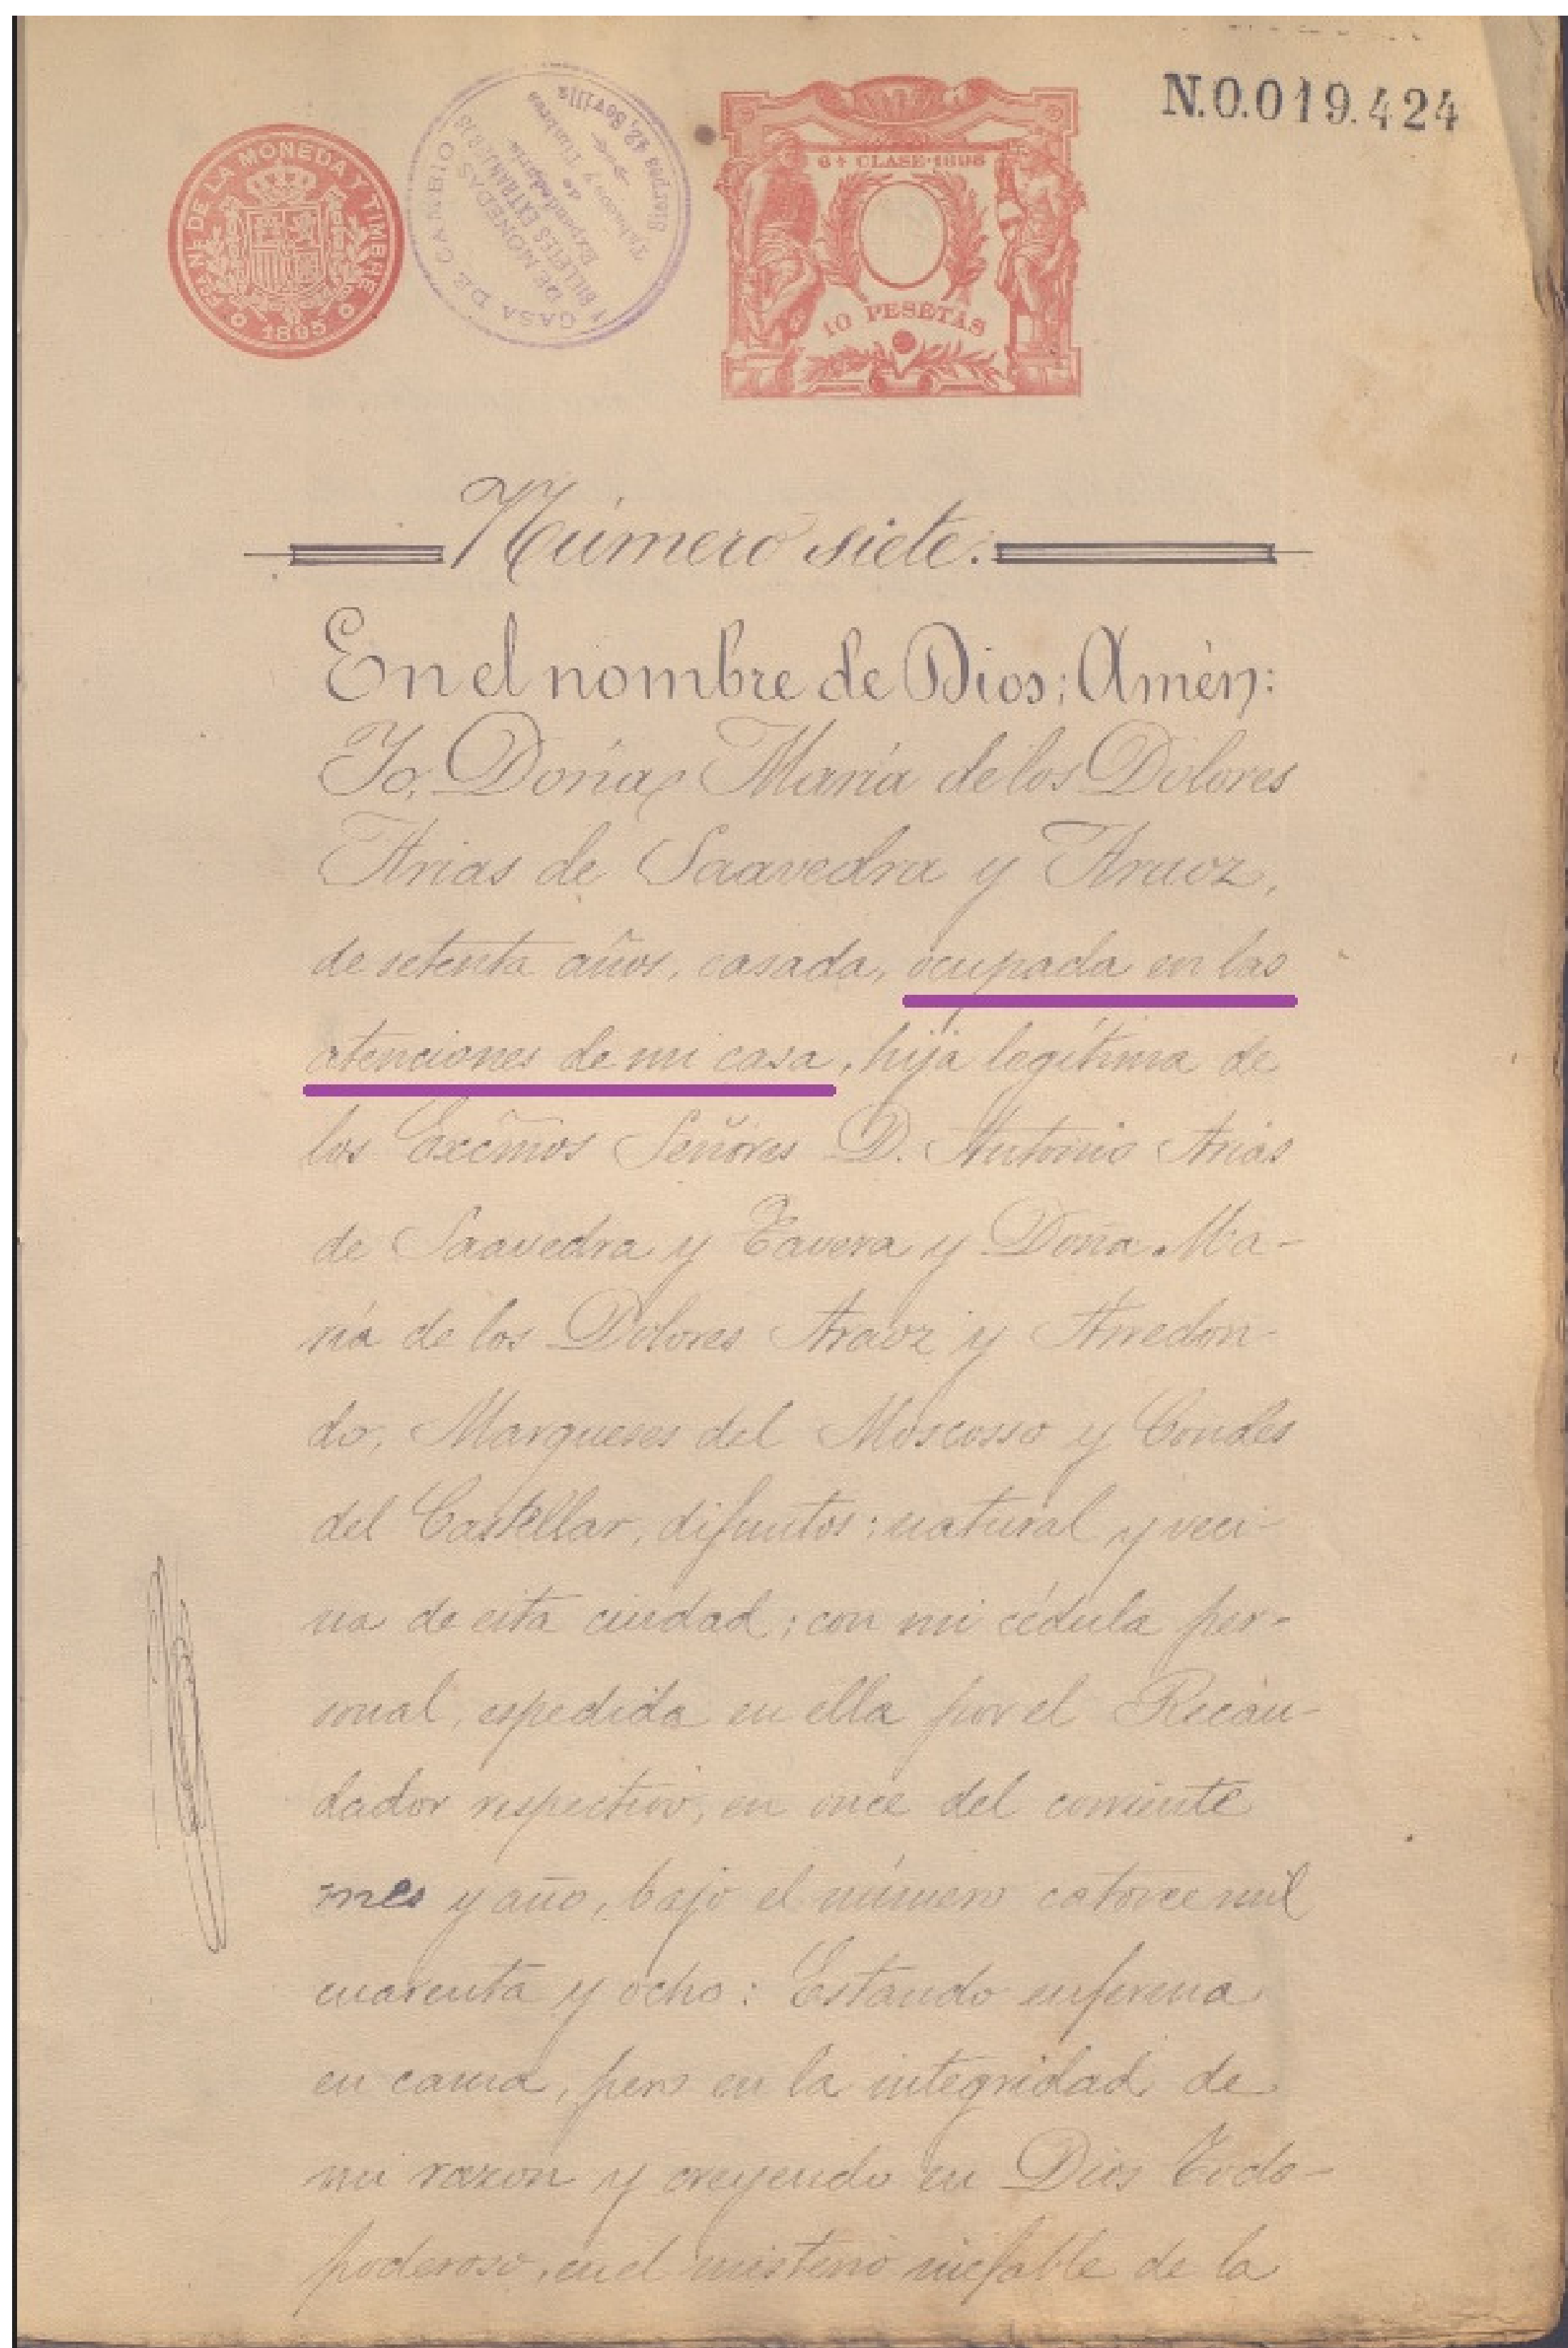 N.0.019.424
FAB. NE DE LA MONEDA Y TIMBRE
1895
CASA DE CAMBIO
DE MONEDAS
Y BILLETES EXTRANJEROS
Expendeduría
de
Tabacos y Timbres
Sierpes 42, Sevilla
6ª CLASE·1898
10 PESETAS
Número siete:
En el nombre de Dios; Amén:
Yo, Doña María de los Dolores
Arias de Saavedra y Araoz,
de setenta años, casada, ocupada en las
atenciones de mi casa, hija legítima de
los Excmos Señores D. Antonio Arias
de Saavedra y Tavera y Doña Ma-
ría de los Dolores Araoz y Arredon-
do, Marqueses del Moscosso y Condes
del Castellar, difuntos: natural y veci-
na de esta ciudad; con mi cédula per-
sonal, espedida en ella por el Recau-
dador respectivo, en once del corriente
mes y año, bajo el número catorce mil
cuarenta y ocho: Estando enferma
en cama, pero en la integridad de
mi razon y creyendo en Dios Todo-
poderoso, en el misterio inefable de la